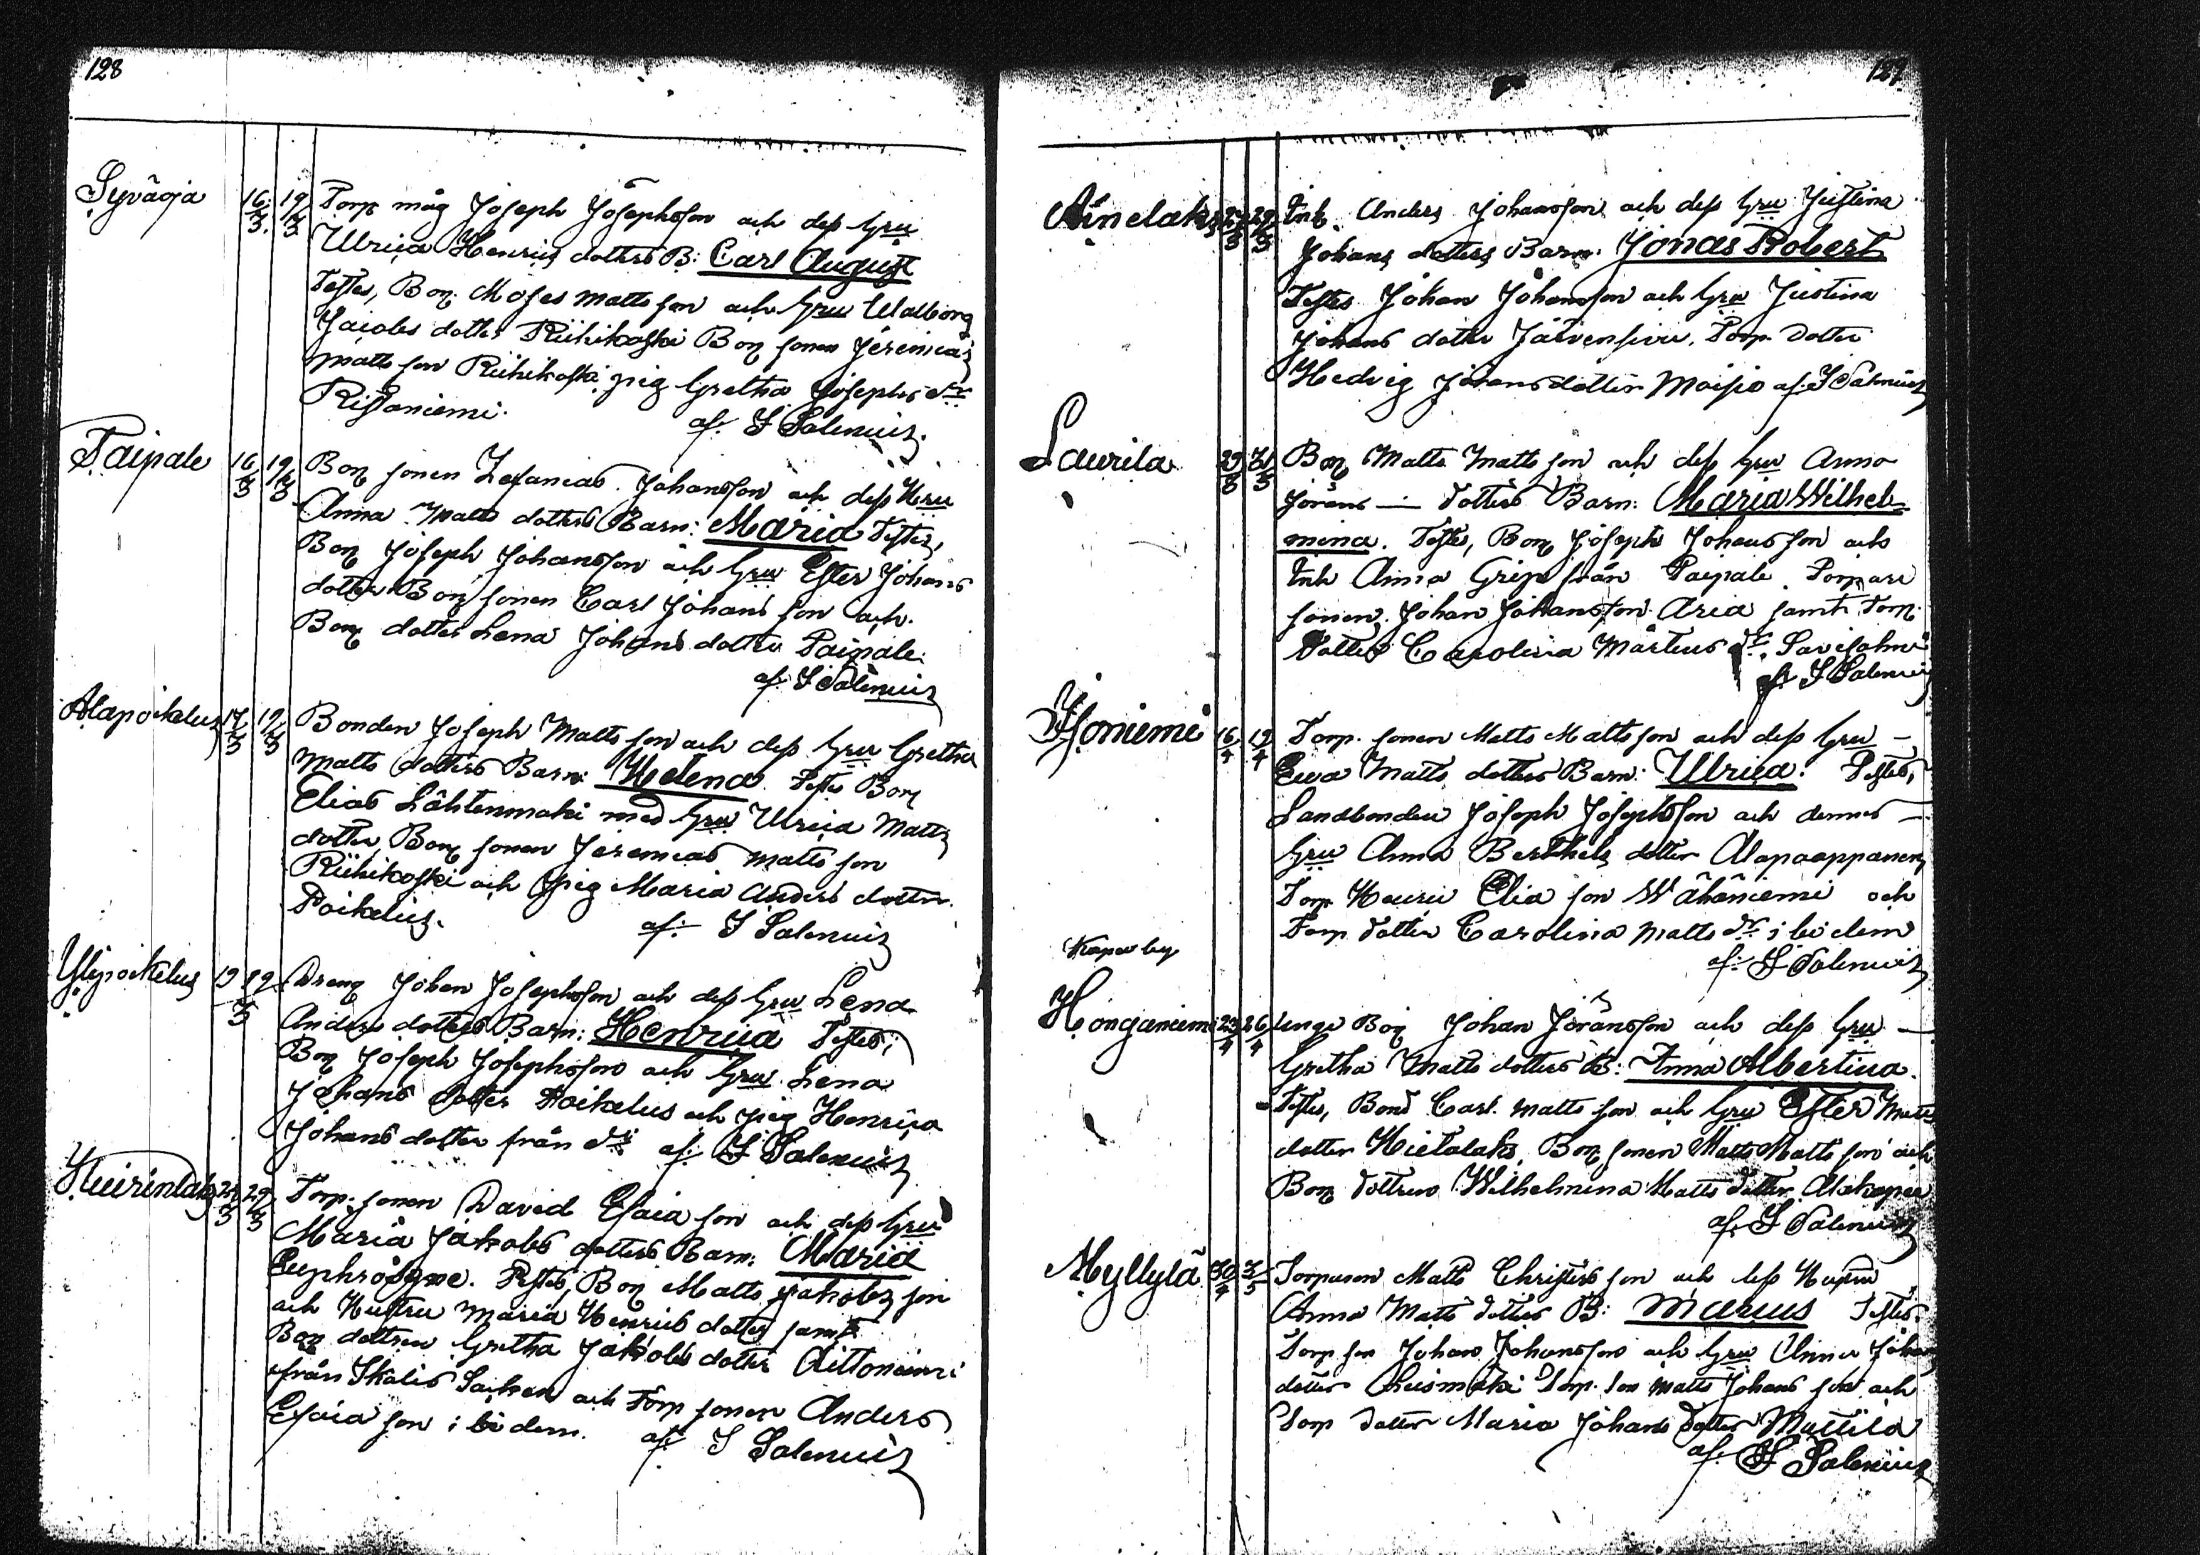 128
Syväoja 16/3. 19/3 Torp måg Joseph Josephsson och dess Hru
Ulrica Henrics dotters B: Carl August
Testes, Bon: Moses Matts son och Hru Walborg
Jacobs dotter Riihikoski Bon sonen Jeremias
Matts son Riihikoski pig Gretha Josephs dr
Rissaniemi. af. I Salenius.
Taipale 16/3 19/3 Bon sonen Zefanias Johansson och dess Hru
Anna Matts dotters Barn: Maria Testes,
Bon Joseph Johansson och Hru Ester Johans
dotter Bon sonen Carl Johans son och.
Bon dotter Lena Johans dotter Taipale.
af. I Salenius
Alapoikelus 17/3 19/3 Bonden Joseph Matts son och dess Hru Gretha
Matts dotters Barn: Helena. Testes Bon
Elias Lähtenmäki med Hru Ulrica Matts
dotter, Bon sonen Jeremias Matts son
Riihikoski och pig Maria Anders dotter
Poikelus. af: I Salenius
Ylipoikelus 19 19/3 Dreng Johan Josephsson och dess Hru Lena
Anders dotters Barn: Henrica Testes;
Bon Joseph Josephsson och Hru Lena
Johans dotter Poikelus och pig Henrica
Johans dotter från do af: I Salenius
29/3 Torp. sonen David Esaia son och dess Hru
Maria Jakobs dotters Barn: Maria
Euphrosyne. Testes, Bon Matts Jakobs son
och Hustru Maria Henrics dotter samt
Bon dottren Gretha Jakobs dotter Aittoniemi
från Ikalis Socken och Torp sonen Anders
Esaia son ibidem. af. I Salenius
129.
29/3 Inh. Anders Johansson och dess Hru Justina
Johans dotters Barn: Jonas Robert
Testes Johan Johansson och Hru Justina
Johans dotter Järvensivu. Torp. dotter
Hedvig Johans dotter Moisio af. I Salenius
Laurila 31/3 Bon Matts Matts son och dess Hru Anna
Jörans — dotters Barn: Maria Wilhel-
mina. Testes, Bon Joseph Johans son och
Inh Anna Grip från Paipale Torpare
sonen Johan Johansson Aria samt Torp.
dotter Carolina Mårtens dr.
af. I Salenius
Isoniemi 16/4 19/4 Torp. sonen Matts Matts son och dess Hru —
Ewa Matts dotters Barn: Ulrica: Testes,
Landbonden Joseph Josephsson och dennes —
Hru Anna Berthels dotter Alapaappanen,
Torp Henric Elia son Wähäniemi och
Torp dotter Carolina Matts dr ibidem
af: I Salenius
Kapee by
Honganiemi 23/4 26/4 unge Bon Johan Jöransson och dess Hru —
Gretha Matts dotters B: Anna Albertina.
Testes, Bond Carl Matts son och Hru Ester Matts
dotter Hietalaks, Bon sonen Matts Matts son och
Bon dottren Wilhelmina Matts dotter Alakapee
af. I Salenius
Myllylä 30/4 3/5 Torparen Matts Christers son och dess Hustru
Anna Matts dotters B: Marcus Testes.
Torp son Johan Johansson och Hru Anna Johans
dotter Torp. son Matts Johans son och
Torp dotter Maria Johans dotter Mattila
af. I Salenius